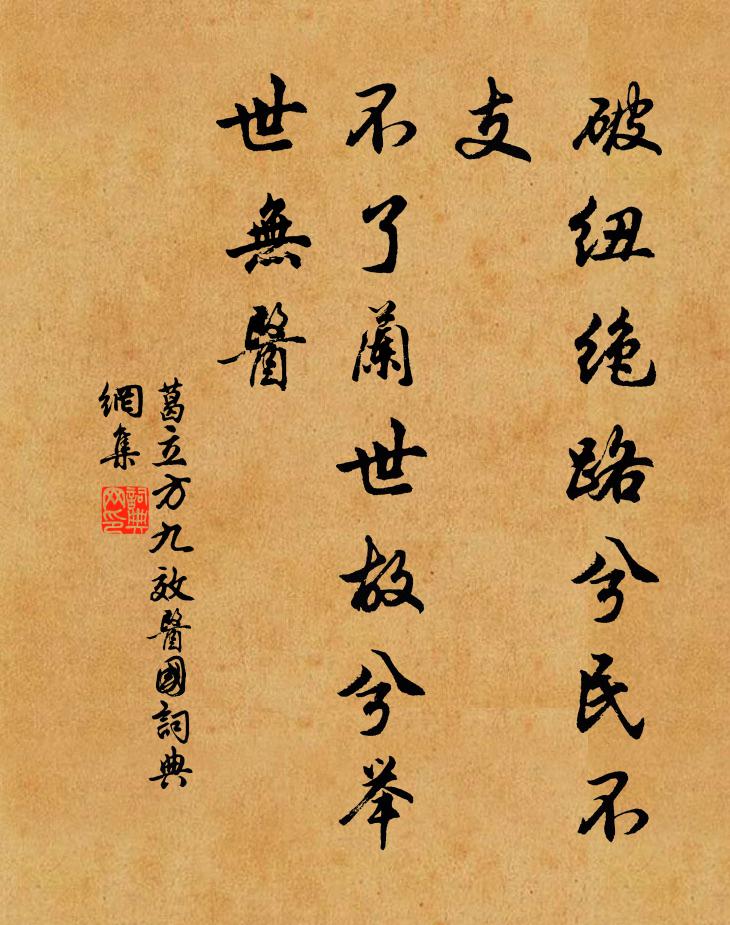 破纽绝路兮民不
支
不了兰世故兮举
世無醫
葛立方九效醫國詞典
網集
詞典
网印